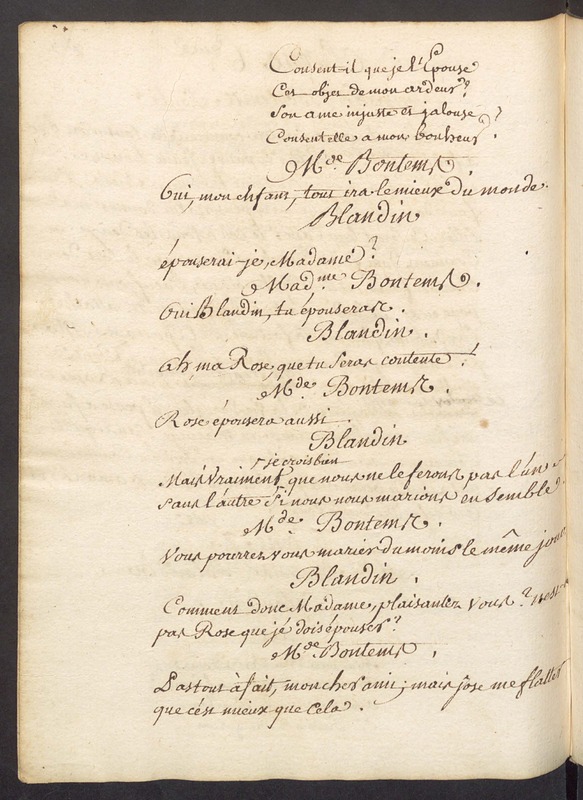 Consent-il que je l'Epouse
Cet objet de mon ardeur?
Son ame injuste et jalouse
Consent elle a mon bonheur?
Mde Bontems.
Oui, mon enfant, tout ira le mieux du monde.
Blandin
épouserai-je, Madame?
Madme Bontems.
Oui Blandin, tu épouseras.
Blandin.
ah, ma Rose, que tu seras contente!
Mde Bontems.
Rose épousera aussi
Blandin
je crois bien
Mais vraiment que nous ne le ferons pas l'un
sans l'autre si nous nous marions ensemble
Mde Bontems.
Vous pourrez vous marier du moins le même jour
Blandin.
Comment donc Madame, plaisantez vous? n'est-ce
pas Rose que jé dois épouser?
Mde Bontems,
Pas tout à fait, mon cher ami; mais j'ose me flatter
que c'ést mieux que cela.